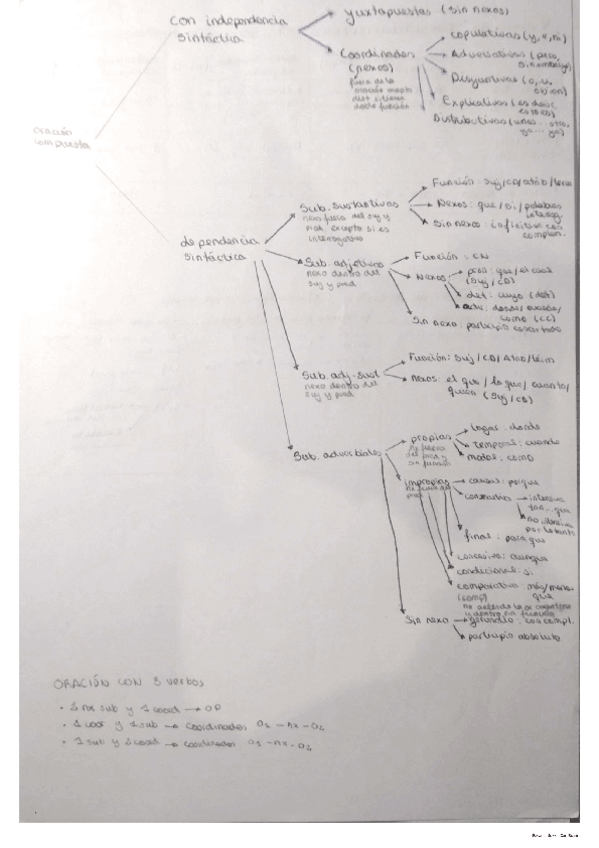 oración
compuesta
con independencia
sintáctica
yuxtapuestas (sin nexos)
Coordinadas
(nexos)
fuera de la
oración excepto
dist
copulativas (y, e, ni)
Adversativas (pero,
sin embargo)
Disyuntivas (o, u,
o bien)
Explicativas (es decir,
esto es)
Distributivas (unos... otros,
ya... ya)
dependencia
sintáctica
Sub. sustantivas
nexo fuera del suj y
pred. excepto si es
interrogativo
Función: suj/CD/atrib/term
Nexos: que/si/palabras
interrog.
Sin nexos: infinitivo con
complem.
Sub. adjetivas
nexo dentro del
suj y pred
Función: CN
Nexos
pron: que/el cual
(suj/CD)
det: cuyo (det)
adv: donde/cuando/
como (CC)
Sin nexo: participio concertado
Sub. adj-sust
nexo dentro del
suj y pred
Función: suj/CD/Atrib/term
nexos: el que/lo que/cuanto/
quien (suj/CD)
Sub. adverbiales
propias
sin función
lugar: donde
temporal: cuando
modal: como
impropias
causal: porque
consecutiva
intensiva
tan... que
no intensiva
por lo tanto
final: para que
concesiva: aunque
condicional: si
comparativa: más/menos
(comp) que
Sin nexo
gerundio: con compl.
participio absoluto
ORACIÓN CON 3 verbos
• 1 nx sub y 1 coord → OP
• 1 coor y 1 sub → coordinadas O1 - nx - O2
• 1 sub y 1 coord → coordinadas O1 - nx - O2